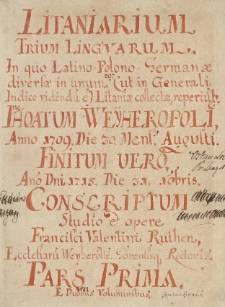 LITANIARIUM
TRIUM LINGVARUM.
In quo Latino-Polono-Germanæ
diversæ in unum (ut in Generali
Indice videndũ ẽ) Litaniæ collectæ, reperiũt
INCHOATUM WEYHEROPOLI,
Anno 1709. Die 30. Mens. Augusti.
FINITUM VERO,
Año Dni 1715. Die 31. 10bris.
CONSCRIPTUM
Studio et opere
Francisci Valentini Ruthen,
Ecclesiarũ Weyheropol:
Rectoris.
PARS PRIMA.
E Duobus Voluminibus.